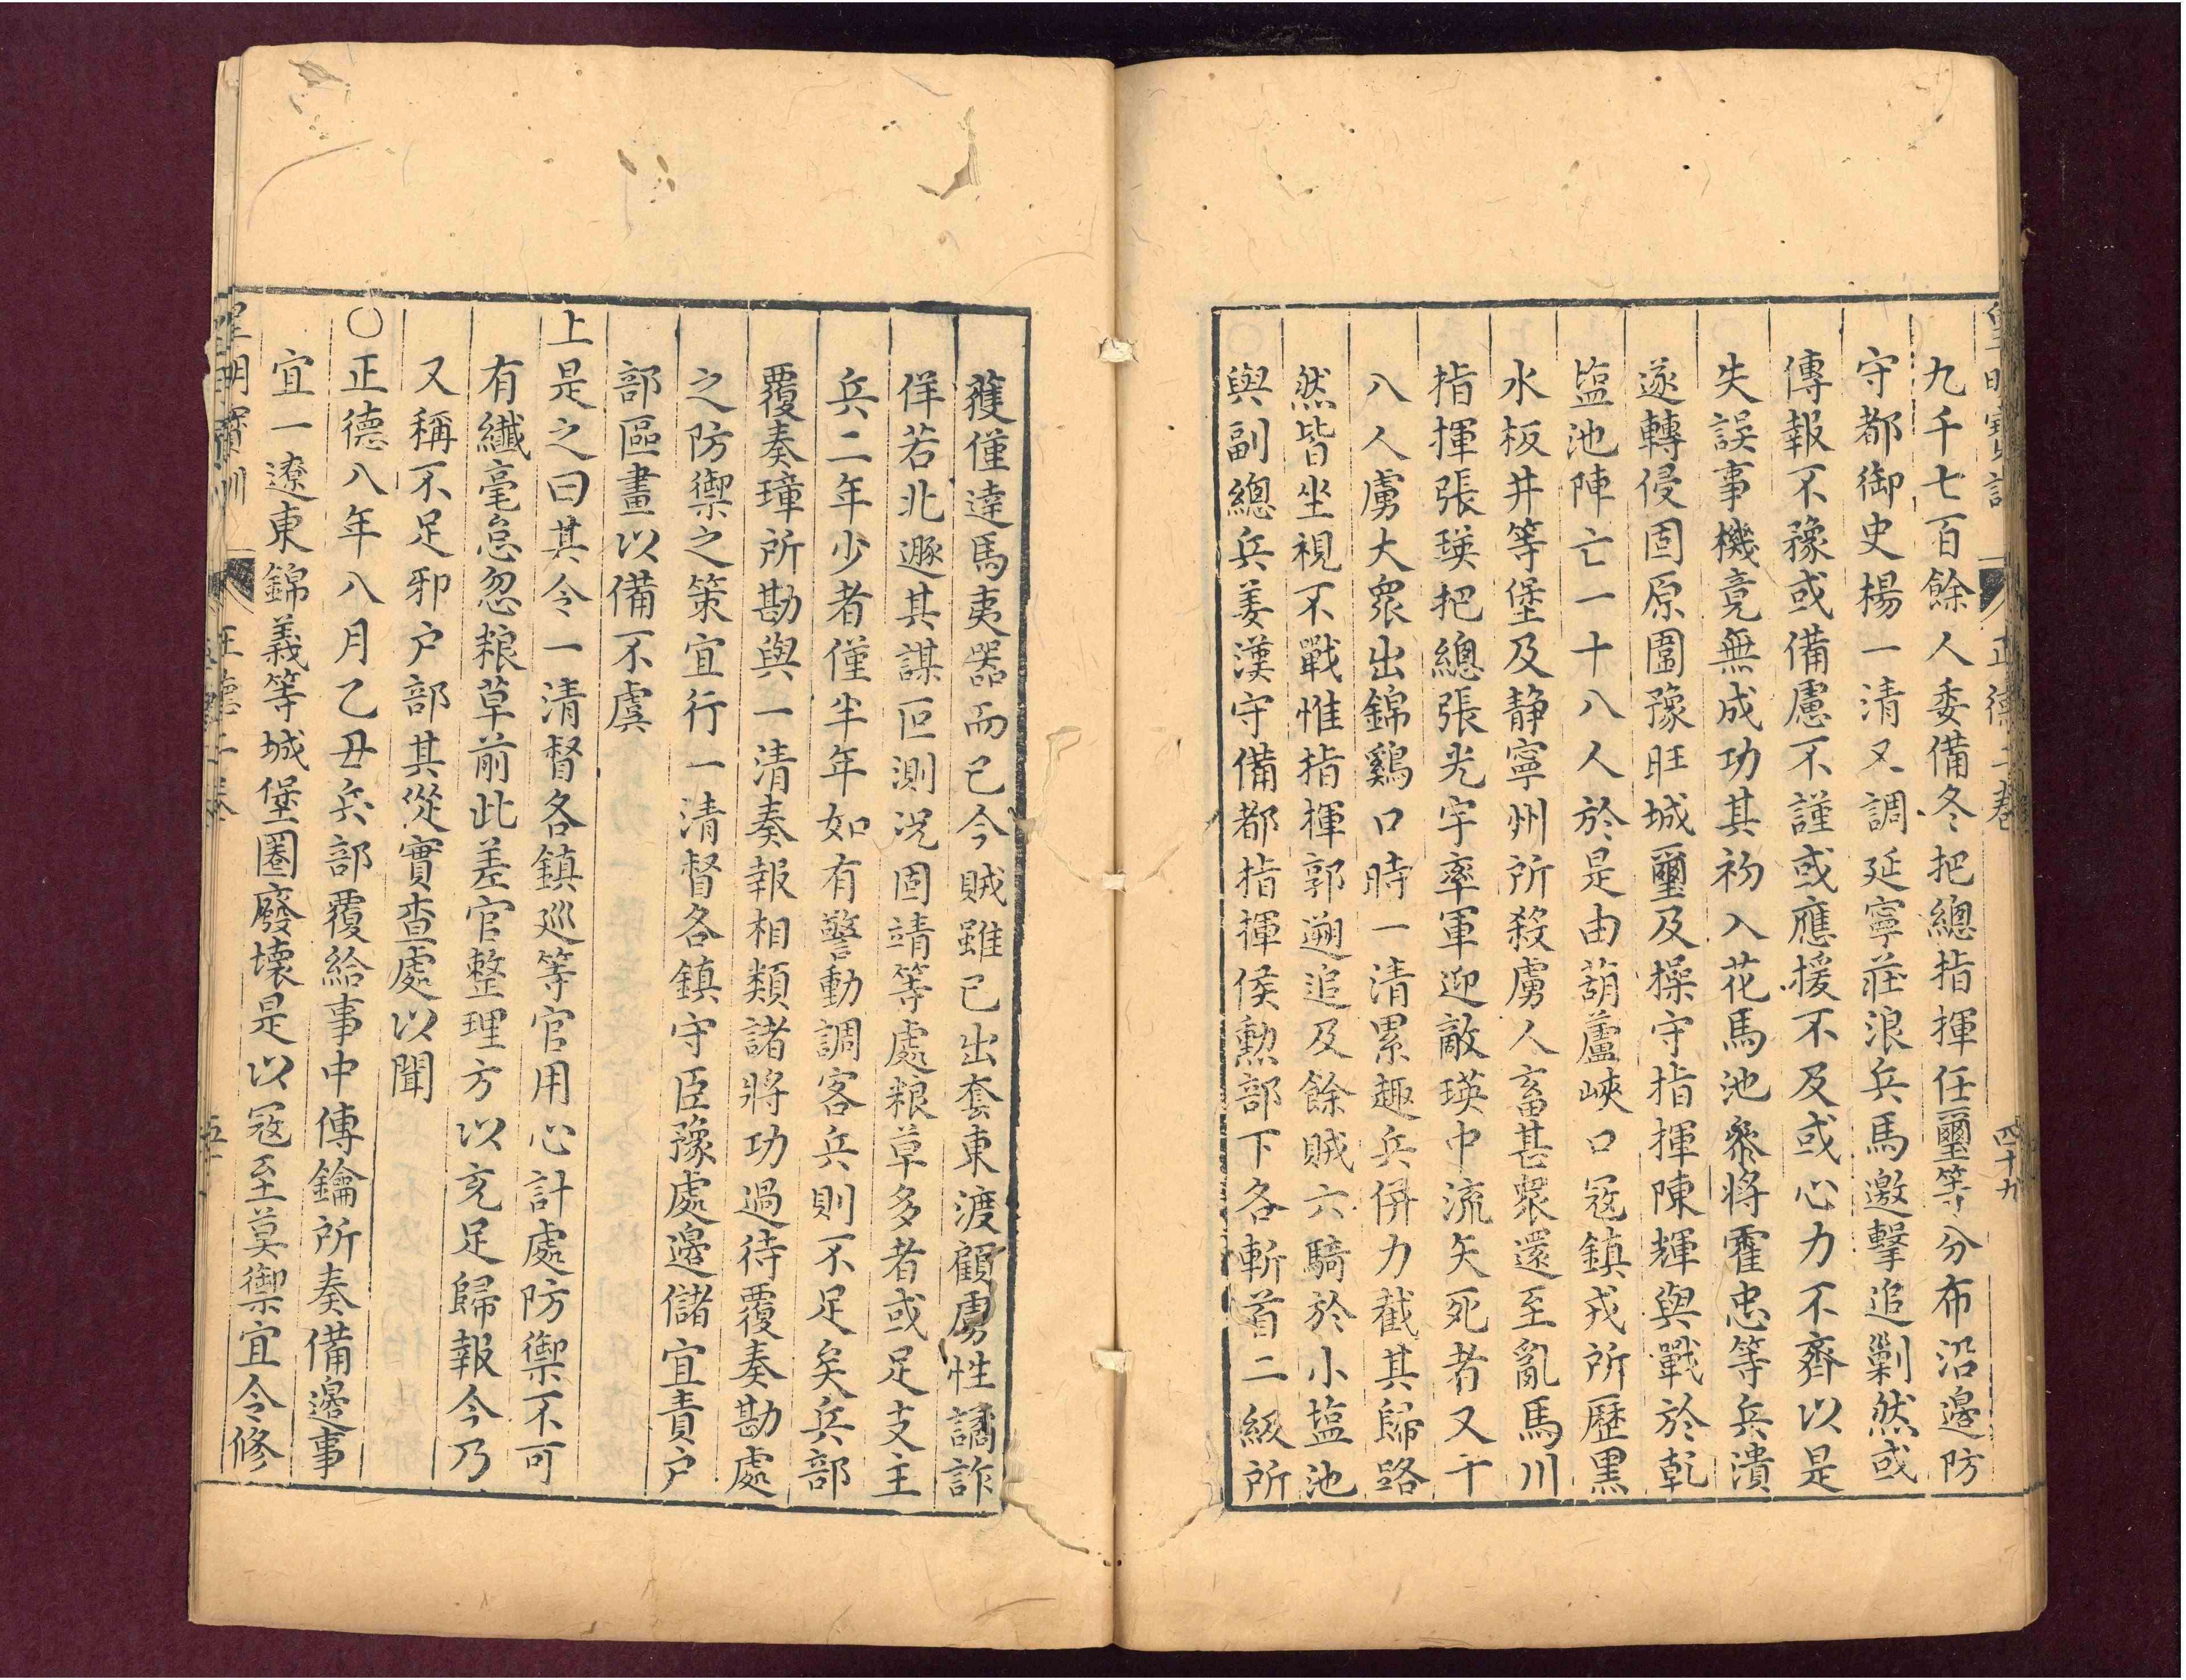 皇明寶訓 正德二卷 四十九
九千七百餘人委備冬把總指揮任璽等分布沿邊防
守都御史楊一清又調延寧莊浪兵馬邀擊追剿然或
傳報不豫或備慮不謹或應援不及或心力不齊以是
失誤事機竟無成功其初入花馬池叅將霍忠等兵潰
遂轉侵固原圍豫旺城璽及操守指揮陳輝與戰於乾
塩池陣亡一十八人於是由葫蘆峽口冦鎮戎所歷黑
水板井等堡及静寧州所殺虜人畜甚衆還至亂馬川
指揮張瑛把總張光宇率軍迎敵瑛中流矢死者又十
八人虜大衆出錦鷄口時一清累趣兵併力截其歸路
然皆坐視不戰惟指揮郭遡追及餘賊六騎於小塩池
與副總兵姜漢守備都指揮侯勲部下各斬首二級所
獲僅達馬夷器而已今賊雖已出套東渡顧虜性譎詐
佯若北遯其謀叵測况固靖等處粮草多者或足支主
兵二年少者僅半年如有警動調客兵則不足矣兵部
覆奏璋所勘與一清奏報相類諸將功過待覆奏勘處
之防禦之策宜行一清督各鎮守臣豫處邊儲宜責户
部區畫以備不虞
上是之曰其令一清督各鎮廵等官用心計處防禦不可
有纖毫怠忽粮草前此差官整理方以充足歸報今乃
又稱不足邪户部其從實查處以聞
○正德八年八月乙丑兵部覆給事中傅鑰所奏備邊事
宜一遼東錦義等城堡圈廢壞是以冦至莫禦宜令修
皇明寶訓 正德二卷 五十